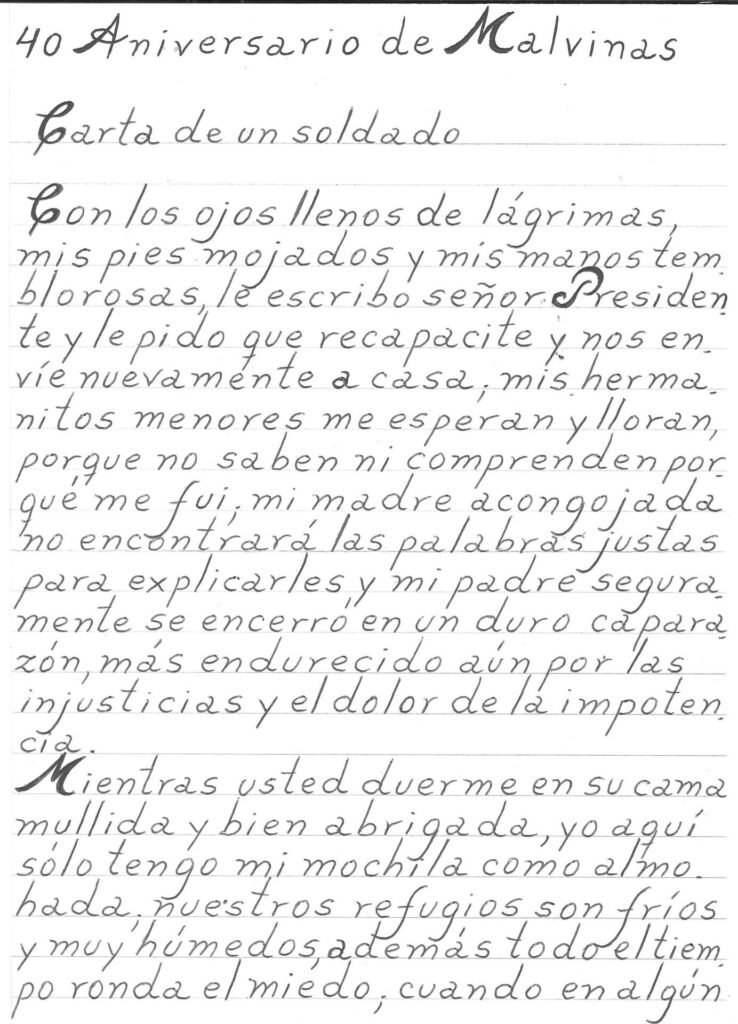 40 Aniversario de Malvinas
Carta de un soldado
Con los ojos llenos de lágrimas,
mis pies mojados y mis manos tem_
blorosas, le escribo señor Presiden_
te y le pido que recapacite y nos en_
víe nuevamente a casa; mis herma_
nitos menores me esperan y lloran,
porque no saben ni comprenden por
qué me fui; mi madre acongojada
no encontrará las palabras justas
para explicarles, y mi padre segura_
mente se encerró en un duro capara_
zón, más endurecido aún por las
injusticias y el dolor de la impoten_
cia.
Mientras usted duerme en su cama
mullida y bien abrigada, yo aquí
sólo tengo mi mochila como almo_
hada; nuestros refugios son fríos
y muy húmedos, además todo el tiem_
po ronda el miedo; cuando en algún